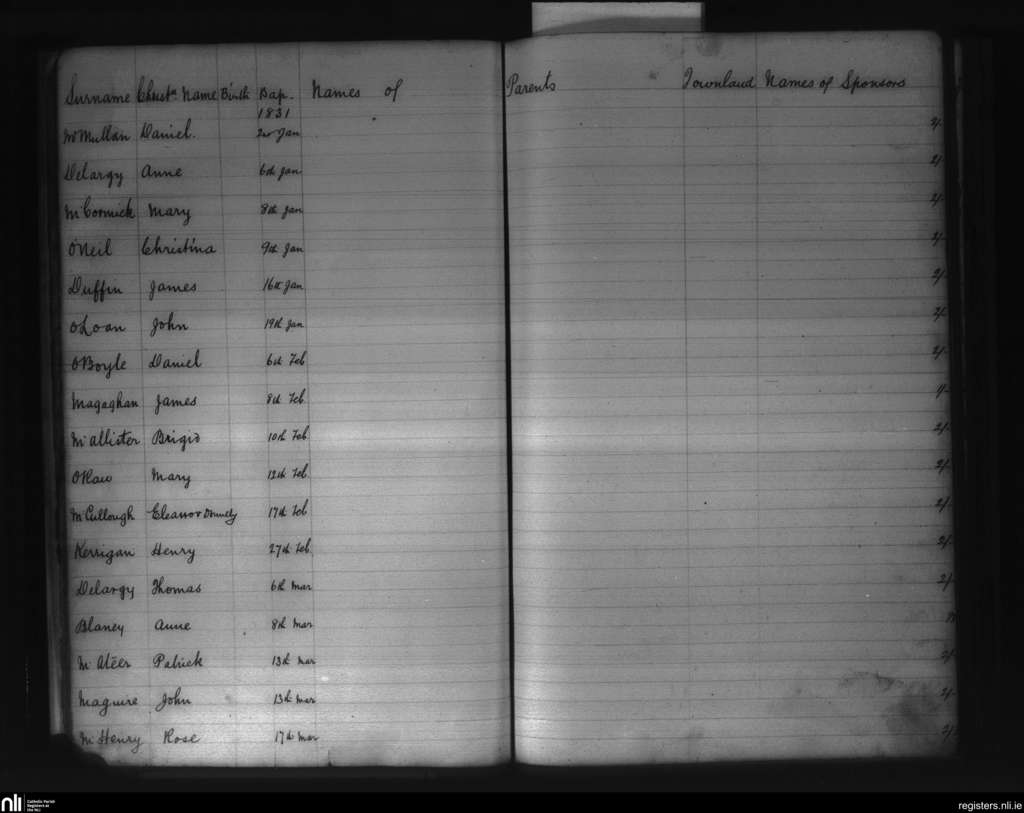 Surname Christn Name Birth Bap. Names of Parents Townland Names of Sponsors
1831
McMullan Daniel. 2nd Jan 2/-
Delargy Anne 6th Jan 2/-
McCormick Mary 8th Jan 2/-
O'Neil Christina 9th Jan 2/-
Duffin James 16th Jan 2/-
O'Loan John 19th Jan 2/-
O'Boyle Daniel 6th Feb 2/-
Magaghan James 8th Feb
McAllister Brigid 10th Feb 2/-
O'Kaw Mary 12th Feb. 2/-
McCullough Eleanor Donnelly 17th Feb 2/-
Kerrigan Henry 27th Feb. 2/-
Delargy Thomas 6th Mar 2/-
Blaney Anne 8th Mar
McAteer Patrick 13th Mar 2/-
Maguire John 13th Mar 2/-
McHenry Rose 17th Mar 2/-
nli Catholic Parish
Registers at
the NLI
registers.nli.ie